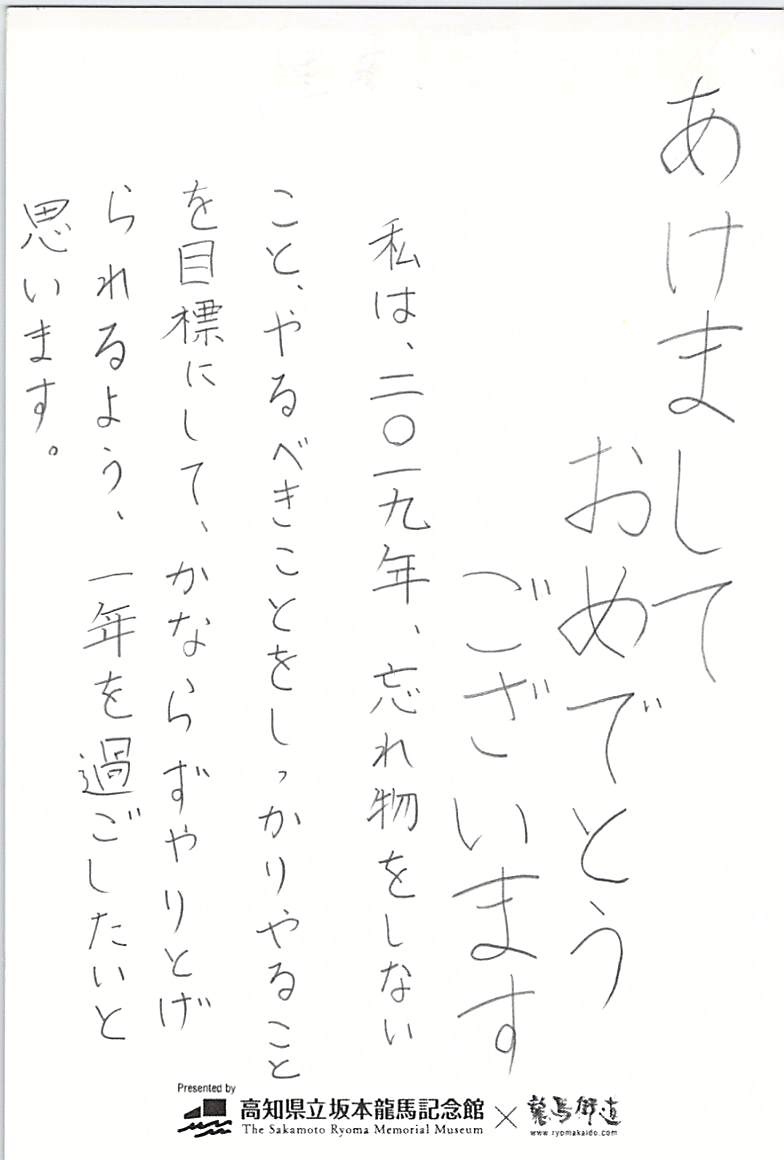 あけまして
おめでとう
ございます
私は、二〇一九年、忘れ物をしない
こと、やるべきことをしっかりやること
を目標にして、かならずやりとげ
られるよう、一年を過ごしたいと
思います。
Presented by
高知県立坂本龍馬記念館
The Sakamoto Ryoma Memorial Museum
×
龍馬街道
www.ryomakaido.com